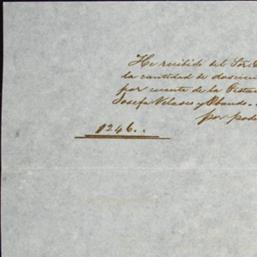 He recibido del Sor
la cantidad de doscien
por cuenta de la Testa
Josefa Velasco y Obando.
por pode
1246..